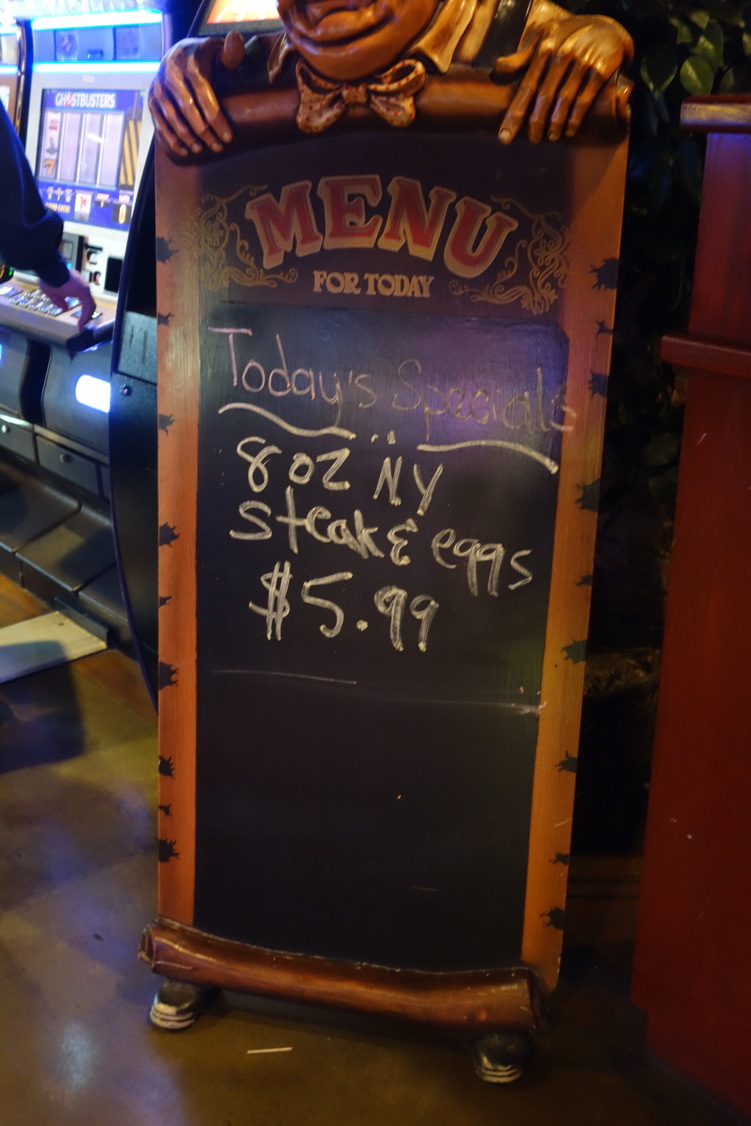 GHOSTBUSTERS
MENU
FOR TODAY
Today's Specials
8oz NY
Steak & eggs
$5.99